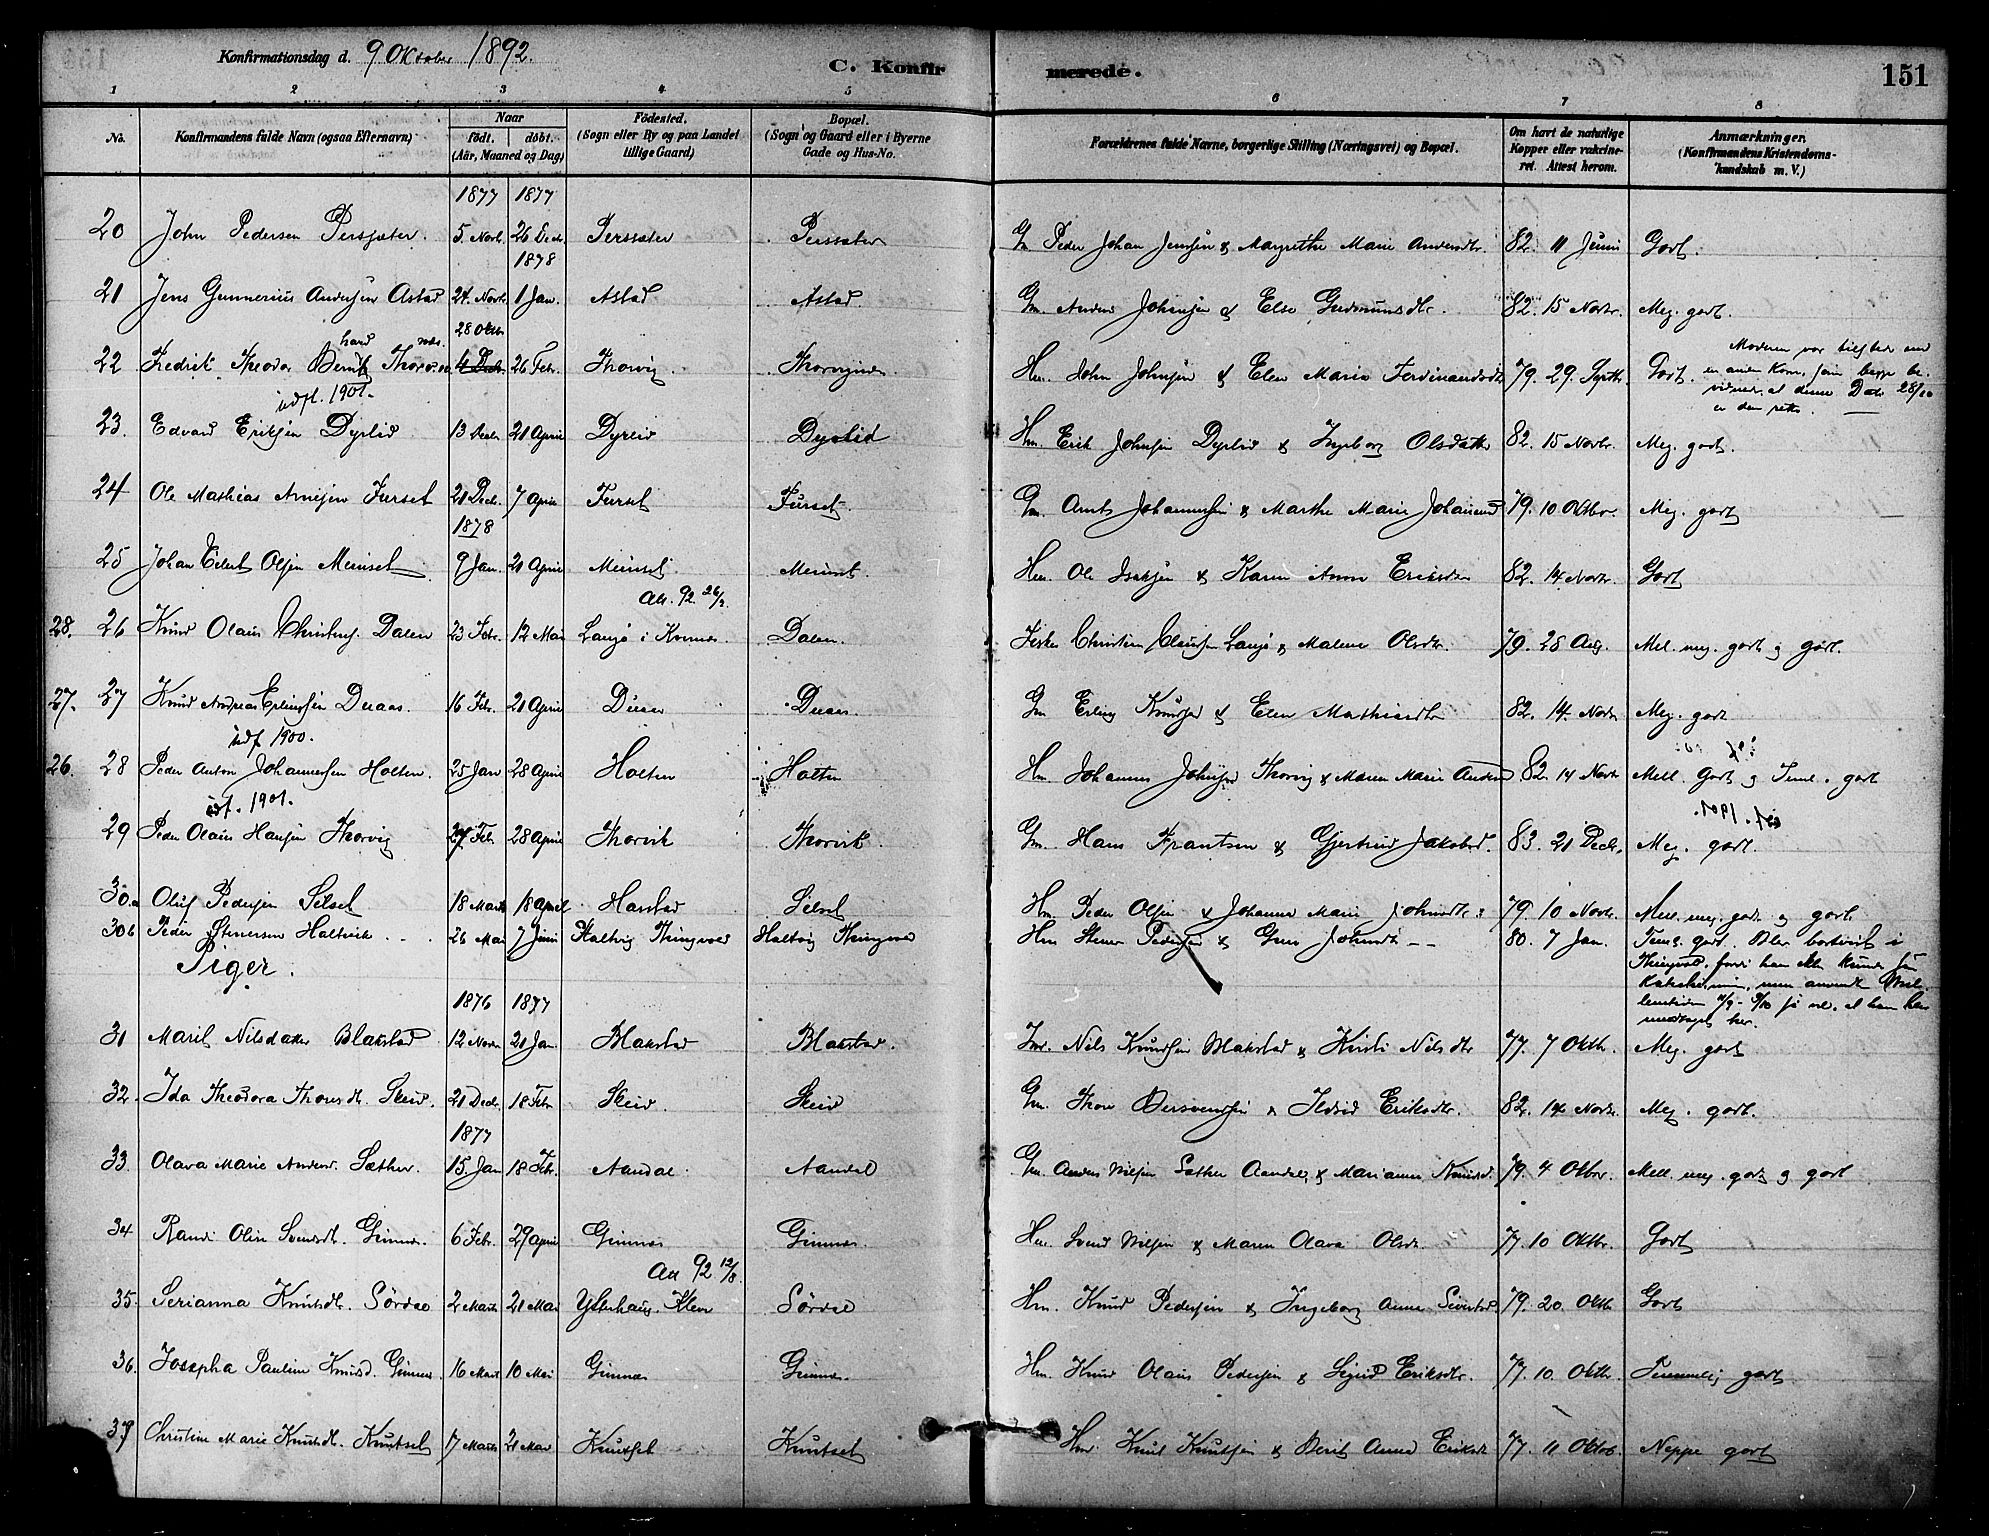 Konfirmationsdag d. 9 Oktober 1892.
C. Konfirmerede.
151
1 2 3 4 5 6 7 8
No. Konfirmandens fulde Navn (ogsaa Efternavn) Naar født. døbt. (Aar, Maaned og Dag) Fødested. (Sogn eller By og paa Landet tillige Gaard) Bopæl. (Sogn og Gaard eller i Byerne Gade og Hus-No. Forældrenes fulde Navne, borgerlige Stilling (Næringsvei) og Bopæl. Om havt de naturlige Kopper eller vakcineret. Attest herom. Anmærkninger. (Konfirmandens Kristendomskundskab m. V.)
1877 1877
20 John Pedersen Perssæter. 5. Novb. 26 Dech. Perssæter Perssæter Gm Peder Johan Jensen & Margrethe Marie Andersdtr. 82. 11 Juni Godt.
1878
21 Jens Gunnerius Andersen Astad 24. Novb. 1 Jan. Astad Astad Gm. Anders Johnsen & Else Gudmundsdtr. 82. 15 Novbr. Meg. godt.
28 Oktbr
22 Fredrik Theodor Bernt Thorvig 4 Decbr 26 Febr. Thorvig Thorvigen Hm. John Johnsen & Elen Marie Ferdinandsdtr 79. 29. Septbr. Godt. Moderen var tilstede med en anden Kone, som begge bevidnet at denne Dato 28/10 er den rette.
udft. 1901.
23. Edvard Eriksen Dyrlid 13 Decbr 21 April Dyrlid Dyrlid Hm. Erik Johnsen Dyrlid & Ingeborg Olsdatter 82. 15 Novbr. Meg. godt.
24 Ole Mathias Arntsen Furset 21 Decb. 7 April Furset Furset. Gm. Arnt Johannessen & Marthe Marie Johansd 79. 10 Oktbr. Meg. godt
1878
25 Johan Edert Olsen Meinset 9 Jan. 21 April Meinset. Meinset. Hm. Ole Isaksen & Karen Anne Eriksdtr 82. 14 Novbr. Godt
Att. 92. 26/2.
28. 26 Knud Olaus Christens. Dalen 23 Febr. 12 Mai Langø i Kvernes. Dalen. Fisker Christian Clausen Langø & Malene Olsdtr. 79. 28 Aug. Mel. meg. godt og godt.
27. 27 Knud Andreas Erlingsen Duaas. 16 Febr. 21 April Duaas Duaas. Gm Erling Knudsen & Elen Mathiasdtr 82. 14. Novbr Meg. godt
udf 1900.
26. 28 Peder Anton Johannessen Holten. 25 Jan 28 April Holten Holten Hm. Johannes Johnsen Thorvig & Maren Marie Andersd 82. 14 Novbr. Mell. Godt og Teml. godt
udf. 1901.
29 Peder Olaus Hansen Thorvig 27 Febr. 28 April Thorvik Thorvik. Gm. Hans Frantsen & Gjertrud Jakobsd. 83. 21 Decb. Meg. godt.
30a Oluf Pedersen Selset 18 Marts 18 April Harstad Selset Hm. Peder Olsen & Johanne Marie Johnsdtr. 79. 10 Novbr. Mel. meg. godt og godt
30b Peder Stenersen Haltvik 26 Mai 7 Juni Haltvig Thingvold Haltvig Thingvold Hm Stener Pedersen & Guru Johnsdtr 80. 7 Jan. Teml. godt. Blev bortvist i Thingvold, fordi han ikke kunde sin Katechismus, men anvendte Mellemtiden 11/9 - 9/10 saa vel, at han kan modtages her.
Piger.
1876 1877
31 Marit Nilsdatter Blakstad 12 Novbr 21 Jan Blakstad Blakstad. Inr. Nils Knudsen Blakstad & Kirsti Nilsdtr 77. 7 Oktbr. Meg. godt
32. Ida Theodora Thoresdtr. Skeid. 21 Decb. 18 Febr Skeid. Skeid Gm. Thore Bersvendsen & Ildrid Eriksdtr. 82. 14. Novbr. Meg. godt.
1877
33. Olava Marie Andersd. Sæther. 15. Jan 18 Febr. Aandal. Aandal Gm. Anders Nilsen Sæther Aandal & Marianne Knudsd. 79. 4 Oktbr. Mell. meg. godt og godt
34 Randi Oline Svendsdtr. Gimnes. 6 Febr. 29 April Gimnes Gimnes. Hm. Svend Nilsen & Maren Olava Olsdtr. 77. 10 Oktbr. Godt
Att 92 12/8.
35. Serianna Knudsdtr. Sørdal 2 Marts 21 Mai Ytterhaug Kleve Sørdal Hm. Knud Pedersen & Ingeborg Anne Sivertsd. 79. 20. Oktb Godt
36. Josepha Pauline Knudsd. Gimnes 16 Marts 10 Mai Gimnes Gimnes. Hm. Knud Olaus Pedersen & Sigrid Eriksdtr. 77. 10. Oktbr. Temmelig godt
37 Christine Marie Knudsdtr. Knutset 17 Marts 21 Mai Knutset Knutset Hm. Knut Knutsen & Berit Anne Eriksdtr 77. 11 Oktob. Neppe godt